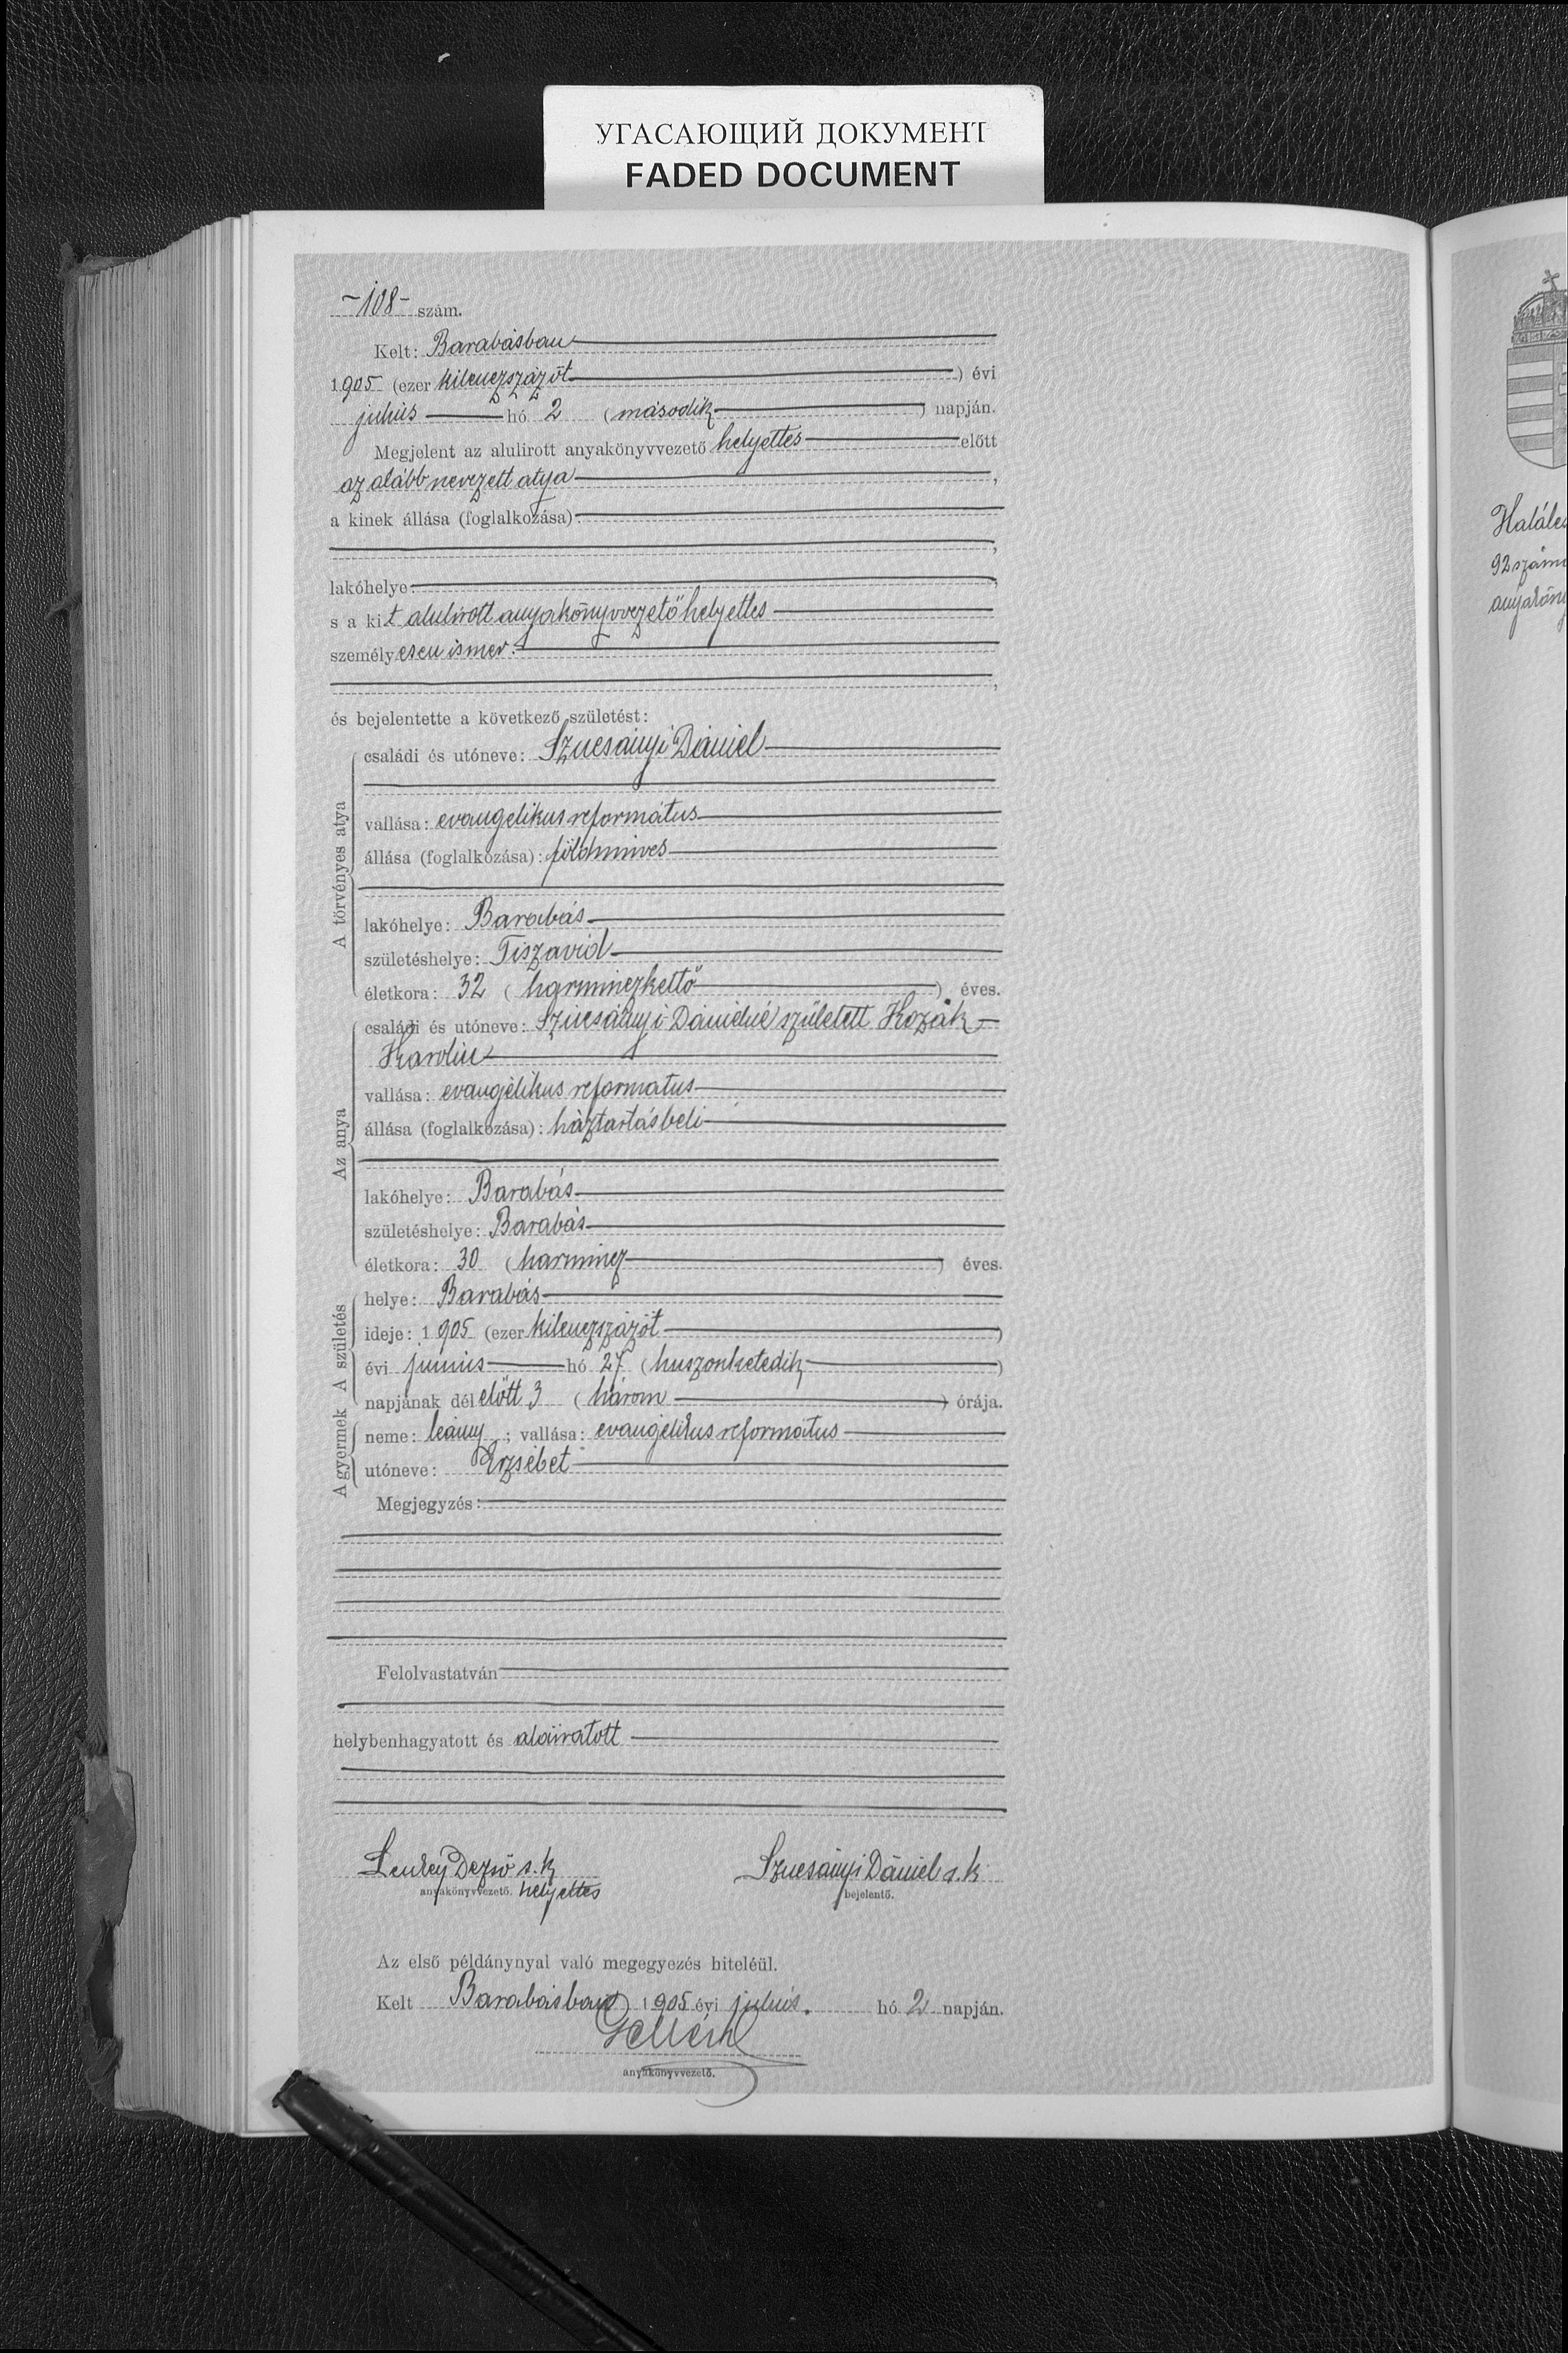 УГАСАЮЩИЙ ДОКУМЕНТ
FADED DOCUMENT
-108- szám.
Kelt: Barabásban
1905 (ezer kilenczszázöt) évi
julius hó 2 (második) napján.
Megjelent az alulirott anyakönyvvezető helyettes előtt
az alább nevezett atya,
a kinek állása (foglalkozása):
lakóhelye:
s a kit alulirott anyakönyvvezető helyettes
személyesen ismer.
és bejelentette a következő születést:
A törvényes atya
családi és utóneve: Szucsányi Dániel
vallása: evangelikus református
állása (foglalkozása): földmives
lakóhelye: Barabás
születéshelye: Tiszavid
életkora: 32 (harminczkettő) éves.
Az anya
családi és utóneve: Szucsányi Dánielné született Kozák
Karolin
vallása: evangélikus reformatus
állása (foglalkozása): háztartásbeli
lakóhelye: Barabás
születéshelye: Barabás
életkora: 30 (harmincz) éves.
A születés
helye: Barabás
ideje: 1905 (ezer kilenczszázöt)
évi junius hó 27 (huszonhetedik)
napjának délelőtt 3 (három) órája.
A gyermek
neme: leány; vallása: evangélikus református
utóneve: Erzsébet
Megjegyzés:
Felolvastatván
helybenhagyatott és aláiratott
Dezső s. k. Szucsányi Dániel s. k.
anyakönyvvezető. helyettes bejelentő.
Az első példánynyal való megegyezés hiteléül.
Kelt Barabásban 1905 évi julius. hó 2 napján.
anyakönyvvezető.
92 számú